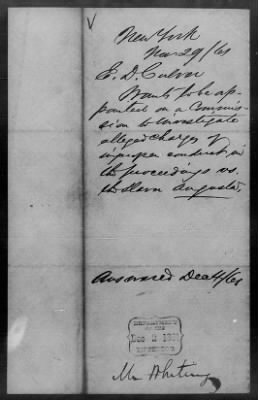 New York
Nov 29/61
E. D. Culver
Wants to be ap-
pointed on a Commis-
sion to investigate
alleged charges of
improper conduct in
the proceedings vs.
the Slaver Augusta.
Answered Dec 4/61
DEPARTMENT
OF THE
Dec 2
INTERIOR
Mr Whiting